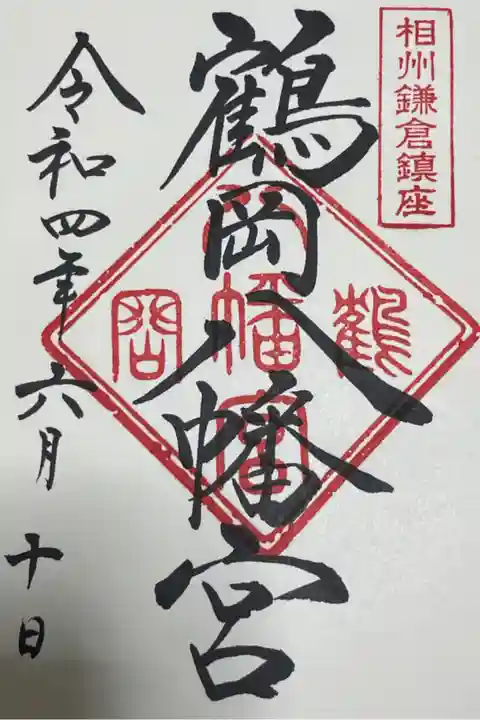 相州鎌倉鎮座
鶴岡八幡宮
鶴岡
八幡宮
令和四年六月十日